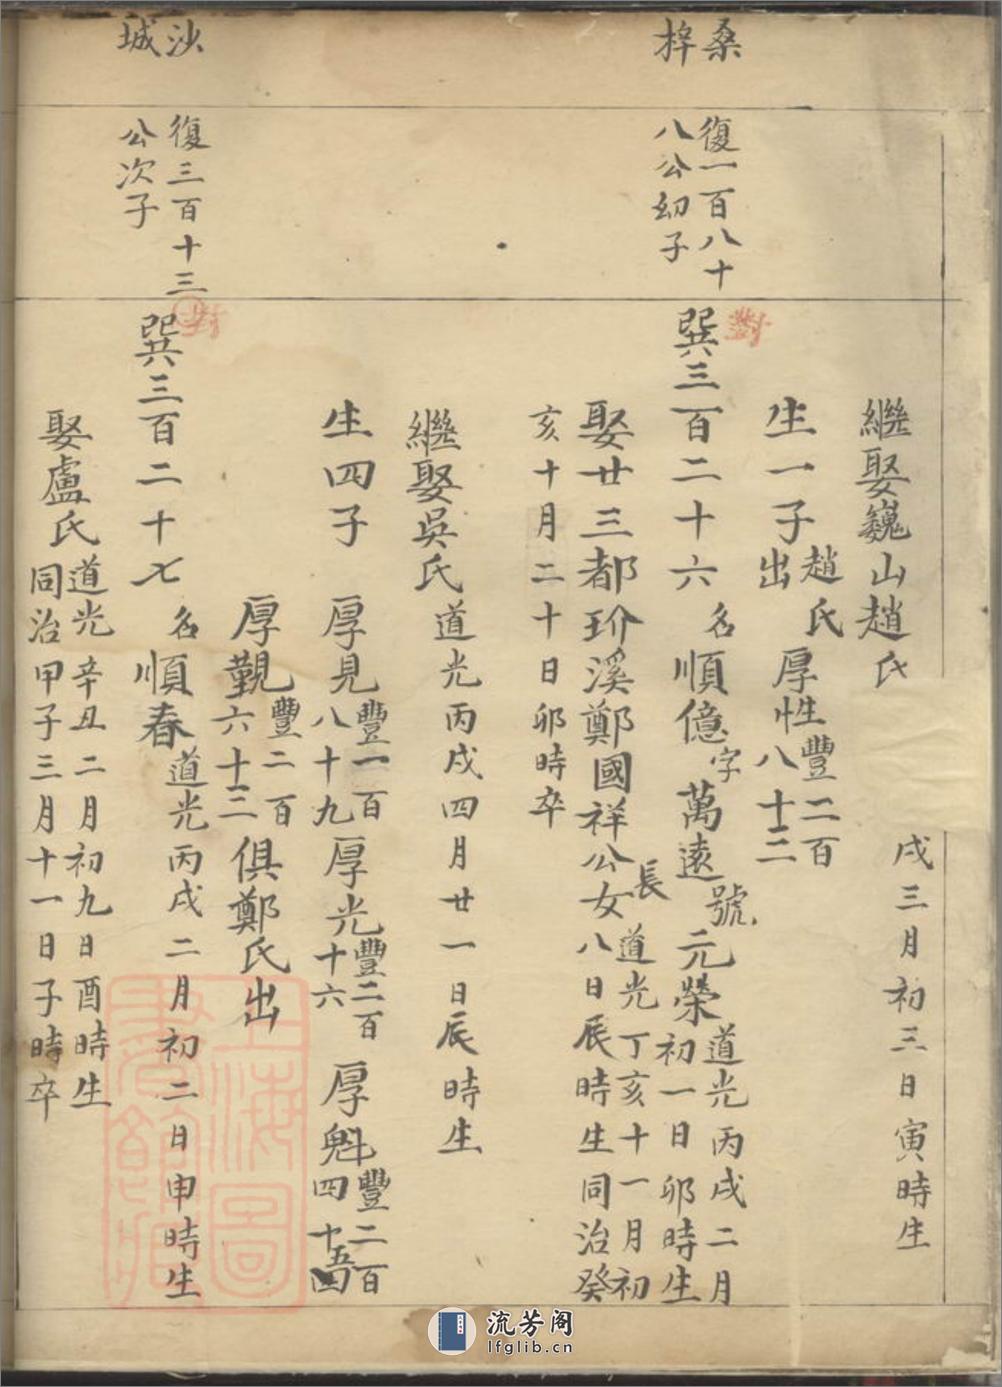 繼娶巍山趙氏
戌三月初三日寅時生
生一子
趙氏
出
厚性
豐二百
八十三
桑
梓
復一百八十
八公幼子
對
巽三百二十六
名
順億
字
萬遠
號
元榮
道光丙戌二月
初一日卯時生
娶廿三都玠溪鄭國祥公
長
女
道光丁亥十一月初
八日辰時生同治癸
亥十月二十日卯時卒
繼娶吳氏
道光丙戌四月廿一日辰時生
生四子
厚見
豐一百
八十九
厚光
豐二百
十六
厚魁
豐二百
四十五
厚觐
豐二百
六十三
俱鄭氏出
沙
城
復三百十三
公次子
對
巽三百二十七
名
順春
道光丙戌二月初二日申時生
娶盧氏
道光辛丑二月初九日酉時生
同治甲子三月十一日子時卒
上海圖
書館藏
流芳阁
lfglib.cn